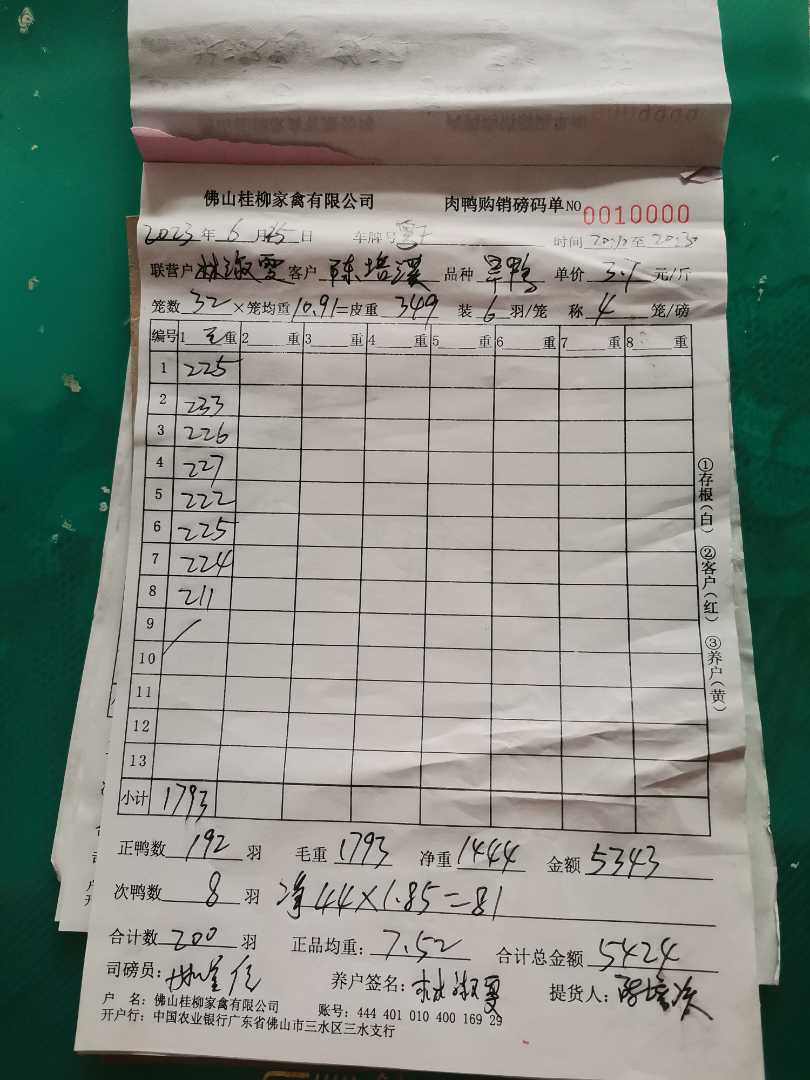 佛山桂柳家禽有限公司 肉鸭购销磅码单NO 0010000
2023年6月25日 车牌号 时间20:10至20:30
联营户林淑雯 客户 陈培溪 品种 旱鸭 单价3.7元/斤
笼数32×笼均重10.91=皮重349 装6羽/笼 称4笼/磅
编号 1毛重 2重 3重 4重 5重 6重 7重 8重
1 225
2 233
3 226
4 227
5 222
6 225
7 224
8 211
9
10
11
12
13
小计 1793
正鸭数192羽 毛重1793 净重1444 金额5343
次鸭数8羽 净44×1.85=81
合计数200羽 正品均重:7.52 合计总金额5424
司磅员: 养户签名:林淑雯 提货人:
户 名:佛山桂柳家禽有限公司 账号:444 401 010 400 169 29
开户行:中国农业银行广东省佛山市三水区三水支行
①存根(白) ②客户(红) ③养户(黄)